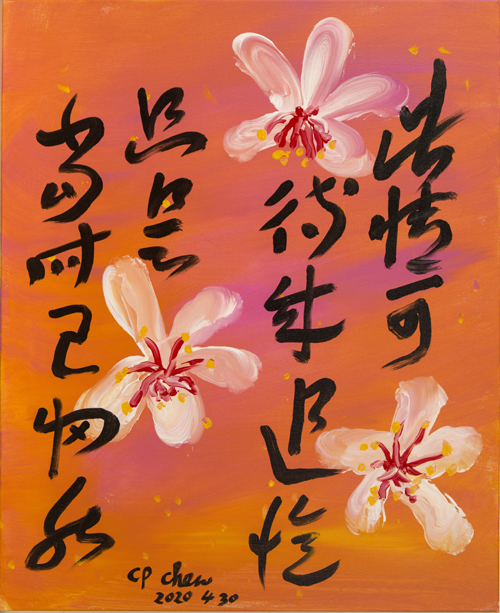 此情可
待成追忆
只是
当时已惘然
CP Chew
2020 4 30